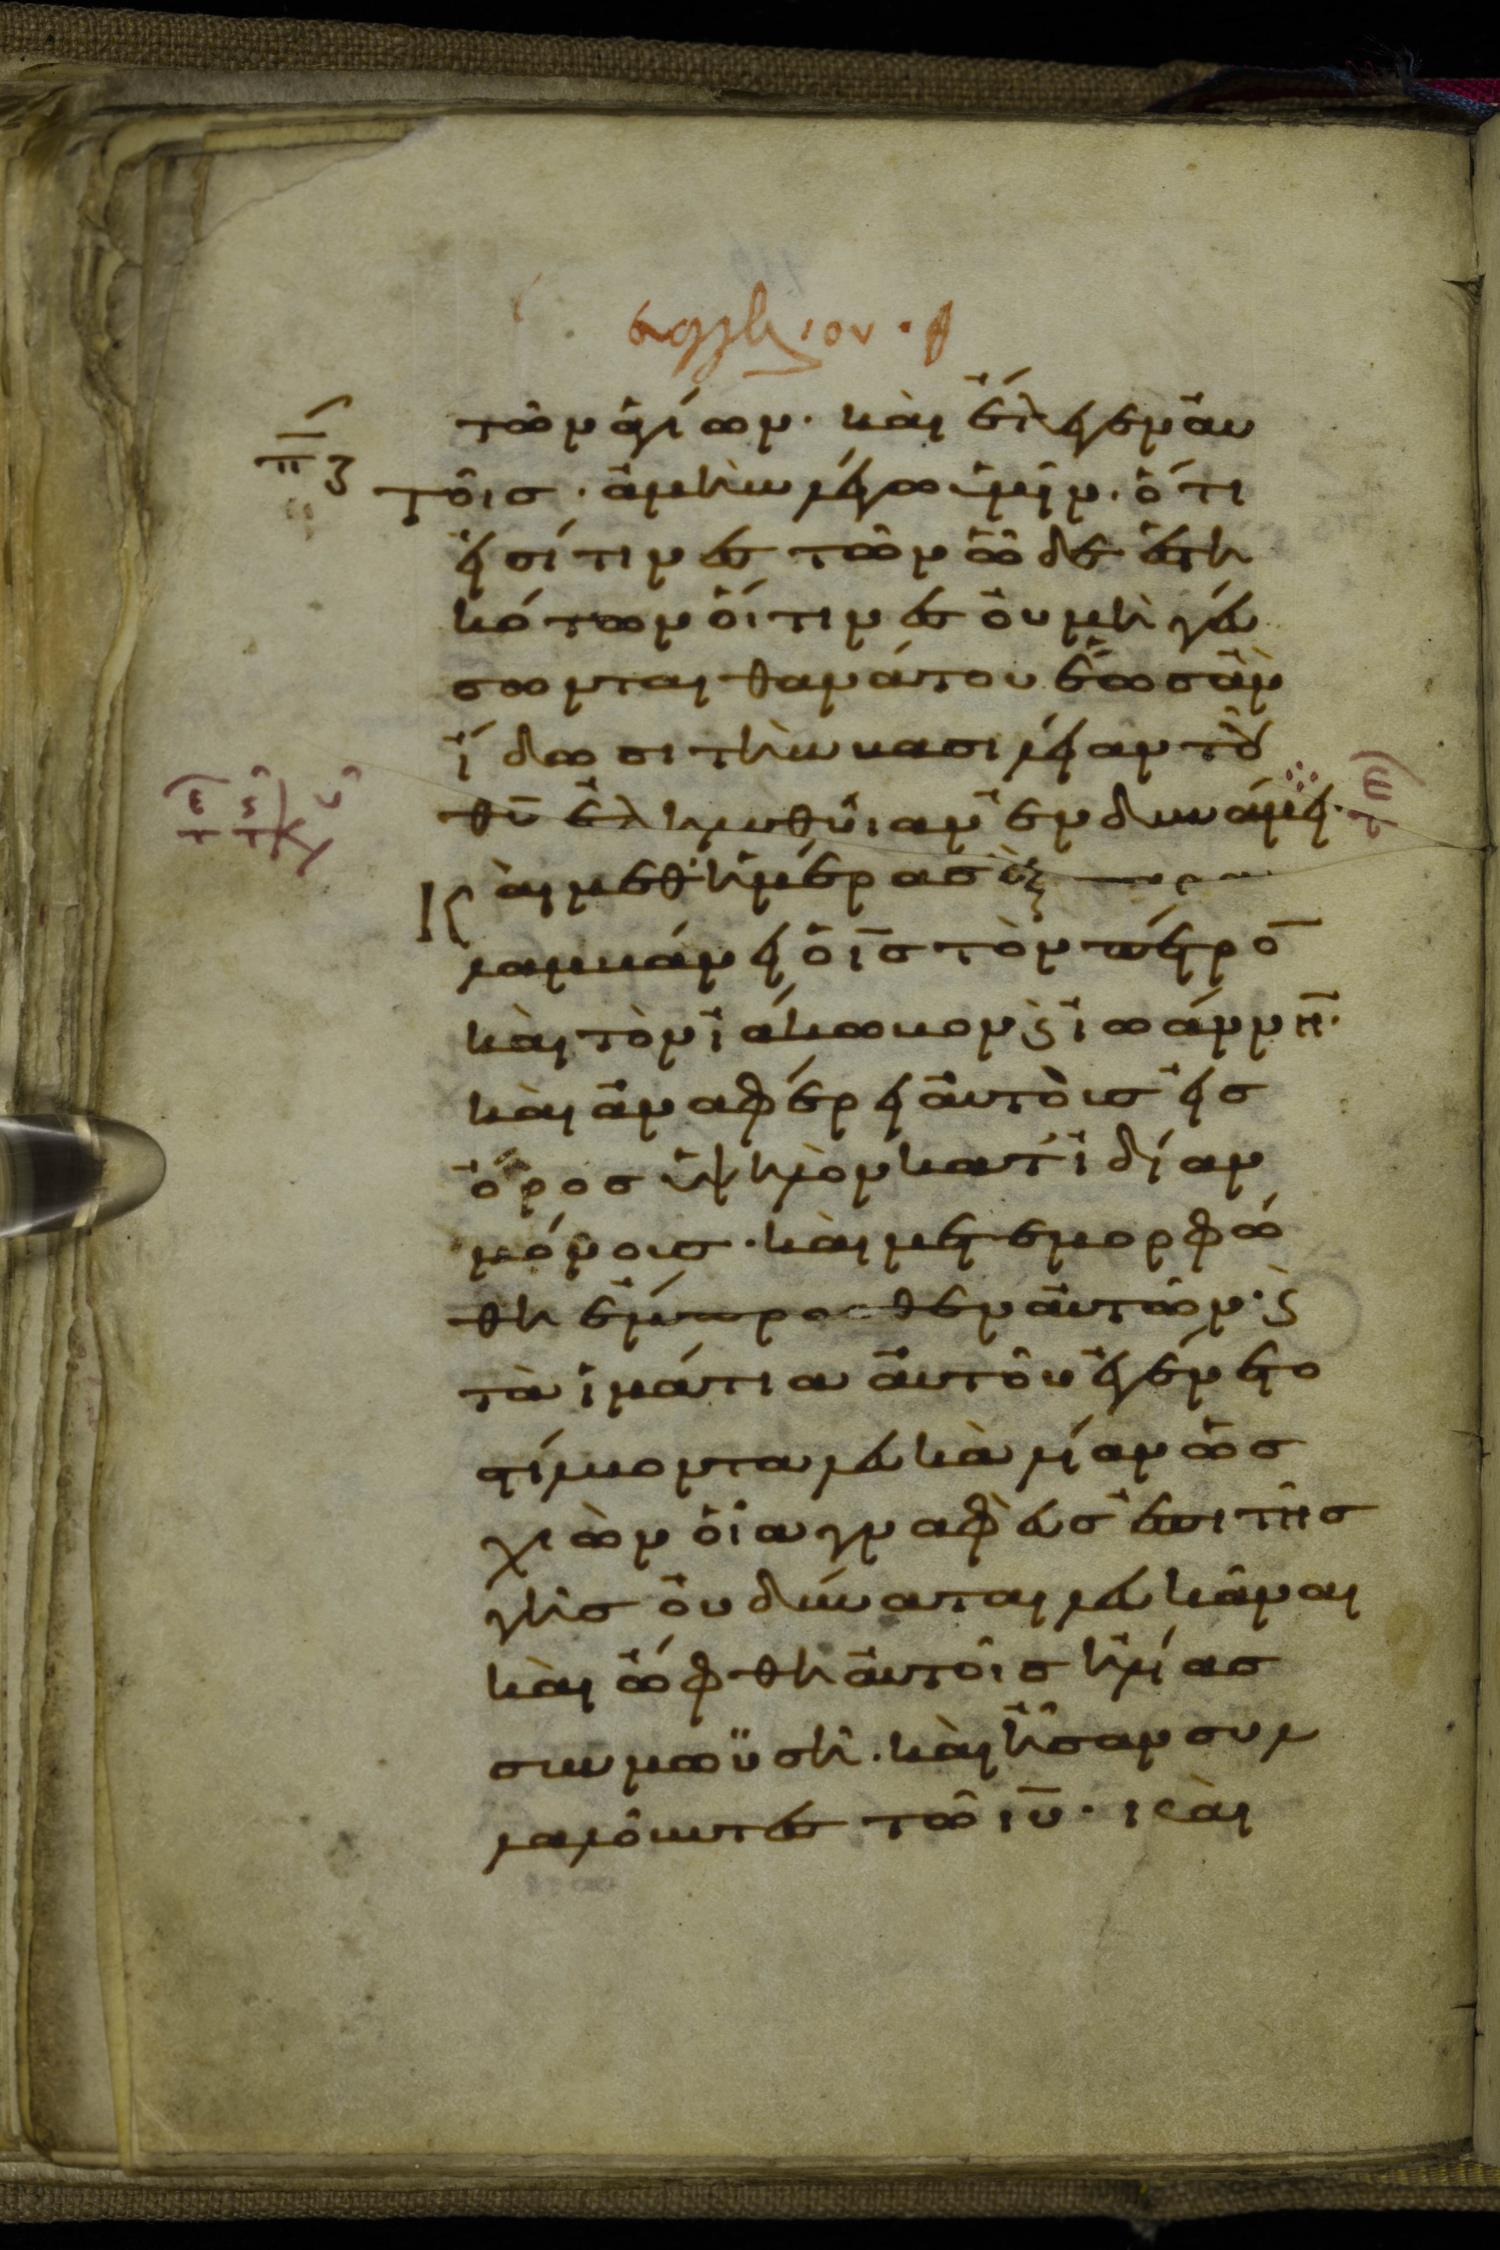 τῶν ἁγίων· καὶ ἔλεγεν αὐ
π̅ζ
τοῖς· ἀμὴν λέγω ὑμῖν· ὅτι
εἰσί τινες τῶν ὧδε ἑστη
κότων οἵτινες οὐ μὴ γεύ
σωνται θανάτου ἕως ἂν
ἴδωσι τὴν βασιλείαν τοῦ
θ̅υ̅ ἐληλυθυῖαν ἐν δυνάμει·
Καὶ μεθ' ἡμέρας ἓξ παρα
λαμβάνει ὁ ι̅ς̅ τὸν πέτρο̅
καὶ τὸν ἰάκωβον ϗ ἰωάννη̅·
καὶ ἀναφέρει αὐτοὺς εἰς
ὄρος ὑψηλὸν κατ' ἰδίαν
μόνους· καὶ μετεμορφώ
θη ἔμπροσθεν αὐτῶν· ϗ
τὰ ἱμάτια αὐτοῦ ἐγένετο
στίλβοντα λευκὰ λίαν ὡς
χιὼν οἷα γναφεὺς ἐπὶ τῆς
γῆς οὐ δύναται λευκᾶναι
καὶ ὤφθη αὐτοῖς ἠλίας
σὺν μωϋσῆ· καὶ ἦσαν συλ
λαλοῦντες τῶ ι̅υ̅· καὶ